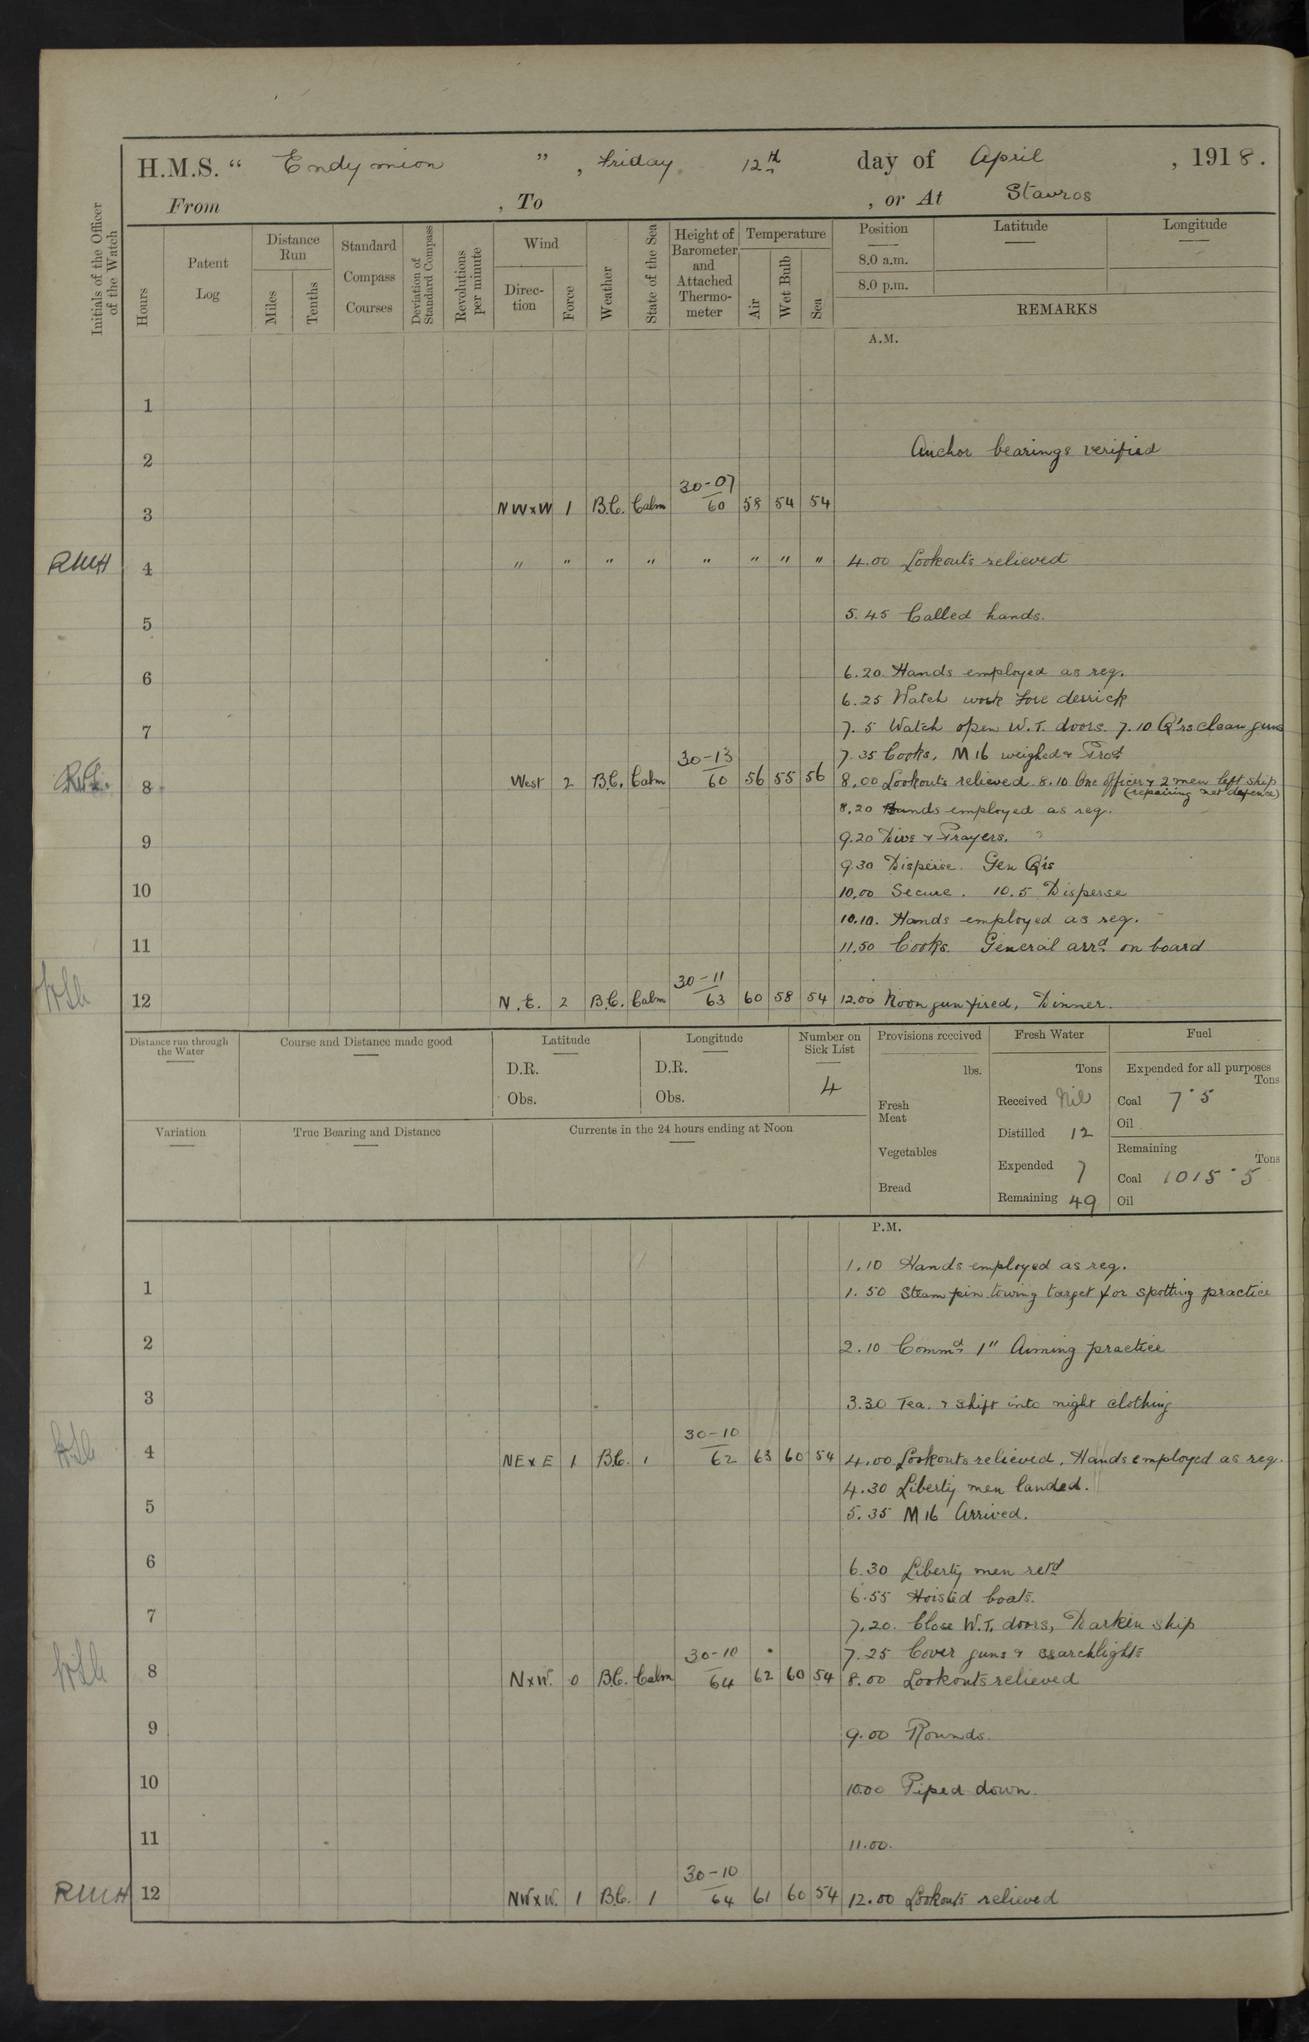 H.M.S. “ Endymion ” , Friday 12th day of April , 1918.
From , To , or At Stavros
Initials of the Officer of the Watch
Hours
Patent Log
Distance Run
Miles
Tenths
Standard Compass Courses
Deviation of Standard Compass
Revolutions per minute
Wind
Direction
Force
Weather
State of the Sea
Height of Barometer and Attached Thermometer
Temperature
Air
Wet Bulb
Sea
Position
8.0 a.m.
8.0 p.m.
Latitude
Longitude
REMARKS
A.M.
1
2 Anchor bearings verified
30-07
3 NWxW 1 B.C. Calm 60 58 54 54
RWH 4 " " " " " " " " 4.00 Lookouts relieved
5 5.45 Called hands.
6 6.20 Hands employed as req.
6.25 Watch work fore derrick
7 7.5 Watch open W.T. doors. 7.10 Q'rs clean guns
30-13 7.35 Cooks, M16 weighed & Procd
8 West 2 B.C. Calm 60 56 55 56 8.00 Lookouts relieved. 8.10 One officer & 2 men left ship
(repairing net defence)
8.20 Hands employed as req.
9 9.20 Divs & Prayers.
9.30 Disperse. Gen Qrs
10 10.00 Secure. 10.5 Disperse
10.10. Hands employed as req.
11 11.50 Cooks. General arrd on board
30-11
12 N.E. 2 B.C. Calm 63 60 58 54 12.00 Noon gun fired, Dinner.
Distance run through the Water
Course and Distance made good
Latitude
D.R.
Obs.
Longitude
D.R.
Obs.
Number on Sick List
4
Provisions received
lbs.
Fresh Meat
Vegetables
Bread
Fresh Water
Tons
Received Nil
Distilled 12
Expended 7
Remaining 49
Fuel
Expended for all purposes
Tons
Coal 7·5
Oil
Remaining
Tons
Coal 1015·5
Oil
Variation
True Bearing and Distance
Currents in the 24 hours ending at Noon
P.M.
1.10 Hands employed as req.
1 1.50 Steam pin. towing target for spotting practice
2 2.10 Commd 1" Aiming practice
3 3.30 Tea. & shift into night clothing
30-10
4 NExE 1 B.C. 1 62 63 60 54 4.00 Lookouts relieved, Hands employed as req.
4.30 Liberty men landed.
5 5.35 M16 Arrived.
6 6.30 Liberty men retd
6.55 Hoisted boats.
7 7.20. Close W.T. doors, Darken ship
30-10 7.25 Cover guns & searchlights
8 NxW. 0 B.C. Calm 64 62 60 54 8.00 Lookouts relieved
9 9.00 Rounds.
10 10.00 Piped down.
11 11.00.
30-10
RWH 12 NWxW. 1 B.C. 1 64 61 60 54 12.00 Lookouts relieved